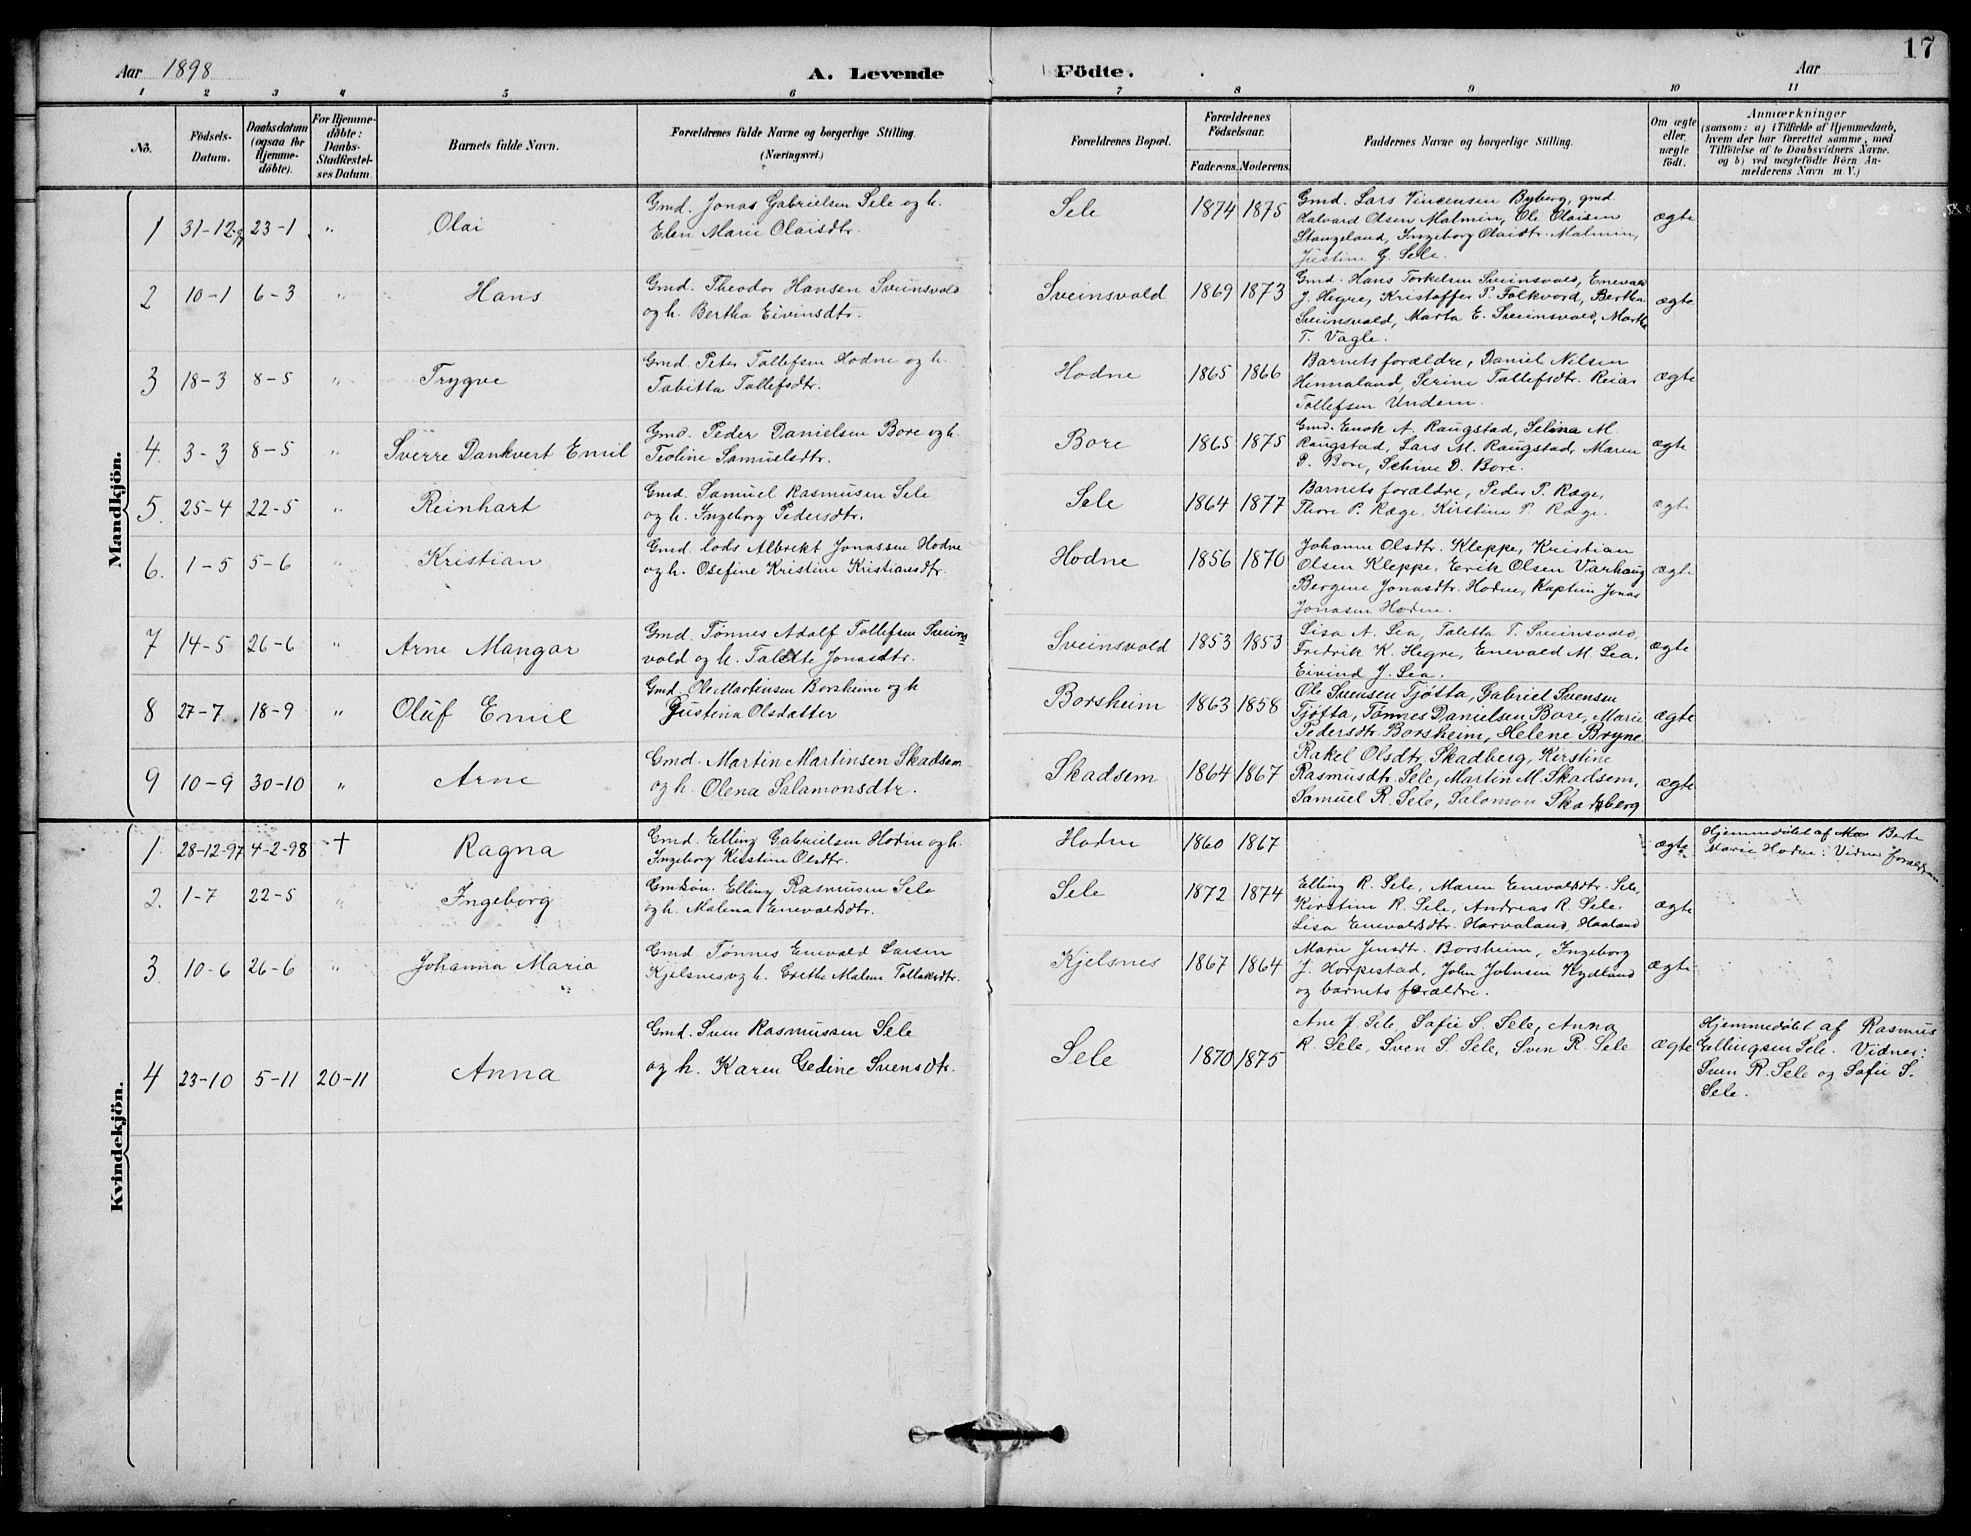 17
Aar 1898 A. Levende Födte. Aar
1 2 3 4 5 6 7 8 9 10 11
No.
Födsels-
Datum.
Daabsdatum
(ogsaa for
Hjemme-
døbte).
For Hjemme-
døbte:
Daabs-
Stadfæstel-
ses Datum.
Barnets fulde Navn.
Forældrenes fulde Navne og borgerlige Stilling.
(Næringsvei.)
Forældrenes Bopæl.
Forældrenes
Födselsaar.
Faderens. Moderens.
Faddernes Navne og borgerlige Stilling.
Om ægte
eller
uægte
födt.
Anmærkninger
(saasom: a) i Tilfælde af Hjemmedaab,
hvem der har forrettet samme, med
Tilföielse af to Daabsvidners Navne.
og b) ved uægtefödte Börn An-
melderens Navn m. V.)
Mandkjön.
1 31-12-97 23-1 " Olai
Gmd. Jonas Gabrielsen Sele og h.
Elen Marie Olaisdtr.
Sele 1874 1875
Gmd. Lars Vincensen Byberg, gmd.
Halvard Olsen Malmin, Ole Olaisen
Stangeland, Ingeborg Olaidtr. Malmin,
Justine G. Sele.
ægte
2 10-1 6-3 " Hans
Gmd. Theodor Hansen Sveinsvold
og h. Bertha Eivinsdtr.
Sveinsvold 1869 1873
Gmd. Hans Torkelsen Sveinsvold, Enevald
J. Hegre, Kristoffer P. Folkvord, Bertha
Sveinsvold, Marta E. Sveinsvold, Martha
T. Vagle.
ægte
3 18-3 8-5 " Trygve
Gmd. Peter Tollefsen Hodne og h.
Tabitta Tollefsdtr.
Hodne 1865 1866
Barnets forældre, Daniel Nilsen
Hennaland, Serine Tollefsdtr. Reias
Tollefsen Undem.
ægte
4. 3-3 8-5 " Sverre Dankvert Emil
Gmd. Peder Danielsen Bore og h.
Teoline Samuelsdtr.
Bore 1865 1875
Gmd. Enok A. Raugstad, Selina M.
Raugstad, Lars M. Raugstad, Maren
P. Bore, Schive D. Bore.
ægte
5. 25-4 22-5 " Reinhart
Gmd. Samuel Rasmusen Sele
og h. Ingeborg Pedersdtr.
Sele 1864 1877
Barnets forældre, Peder P. Ræge,
Thore P. Ræge, Kirstine P. Ræge.
ægte
6. 1-5 5-6 " Kristian
Gmd. lods Albrekt Jonassen Hodne
og h. Osefine Kristine Kristiansdtr.
Hodne 1856 1870
Johanne Olsdtr. Kleppe, Kristian
Olsen Kleppe, Erik Olsen Varhaug
Bergine Jonasdtr. Hodne, Kaptein Jonas
Jonasen Hodne.
ægte
7 14-5 26-6 " Arne Mangor
Gmd. Tønnes Adolf Tollefsen Sveins
vold og h. Talette Jonasdtr.
Sveinsvold 1853 1853
Lisa A. Lea, Taletta T. Sveinsvold,
Fredrik K. Hegre, Enevald M. Lea,
Eivind J. Lea.
ægte
8 27-7 18-9 " Oluf Emil
Gmd. Ole Martinsen Borsheim og h
Justina Olsdatter
Borsheim 1863 1858
Ole Svensen Tjøtta, Gabriel Svensen
Tjøtta, Tønnes Danielsen Bore, Marie
Pedersdtr. Borsheim, Helene Bryne
ægte
9 10-9 30-10 " Arne
Gmd. Martin Martinsen Skadsem
og h. Olena Salamonsdtr.
Skadsem 1864 1867
Rakel Olsdtr. Skadberg, Kirstine
Rasmusdtr. Sele, Martin M. Skadsem,
Samuel R. Sele, Salomon Skadberg
ægte
Kvindekjön.
1. 28-12-97 4-2-98 † Ragna
Gmd. Elling Gabrielsen Hodne og h.
Ingeborg Kirstine Olsdtr.
Hodne 1860 1867
ægte
Hjemmedøbt af Berte
Marie Hodne: Vidner forældrene.
2. 1-7 22-5 " Ingeborg
Gmdsøn. Elling Rasmusen Sele
og h. Malena Enevaldsdtr.
Sele 1872 1874
Elling R. Sele, Maren Enevaldsdtr. Sele,
Kirstine R. Sele, Andreas R. Sele.
Lisa Enevaldsdtr. Harvaland, Haaland
ægte
3. 10-6 26-6 " Johanna Maria
Gmd Tønnes Enevald Larsen
Kjelsnes og h. Grethe Malene Tollaksdtr.
Kjelsnes 1867 1864
Marie Jensdtr. Borsheim, Ingeborg
J. Horpestad, John Johnsen Kydland
og barnets forældre.
ægte
4 23-10 5-11 20-11 Anna
Gmd. Sven Rasmussen Sele
og h. Karen Gedine Svensdtr.
Sele 1870 1875
Ane J. Sele, Sofie S. Sele, Anna
R. Sele, Sven S. Sele, Sven R. Sele
ægte
Hjemmedøbt af Rasmus
Ellingsen Sele. Vidner:
Sven R. Sele og Sofie S.
Sele.